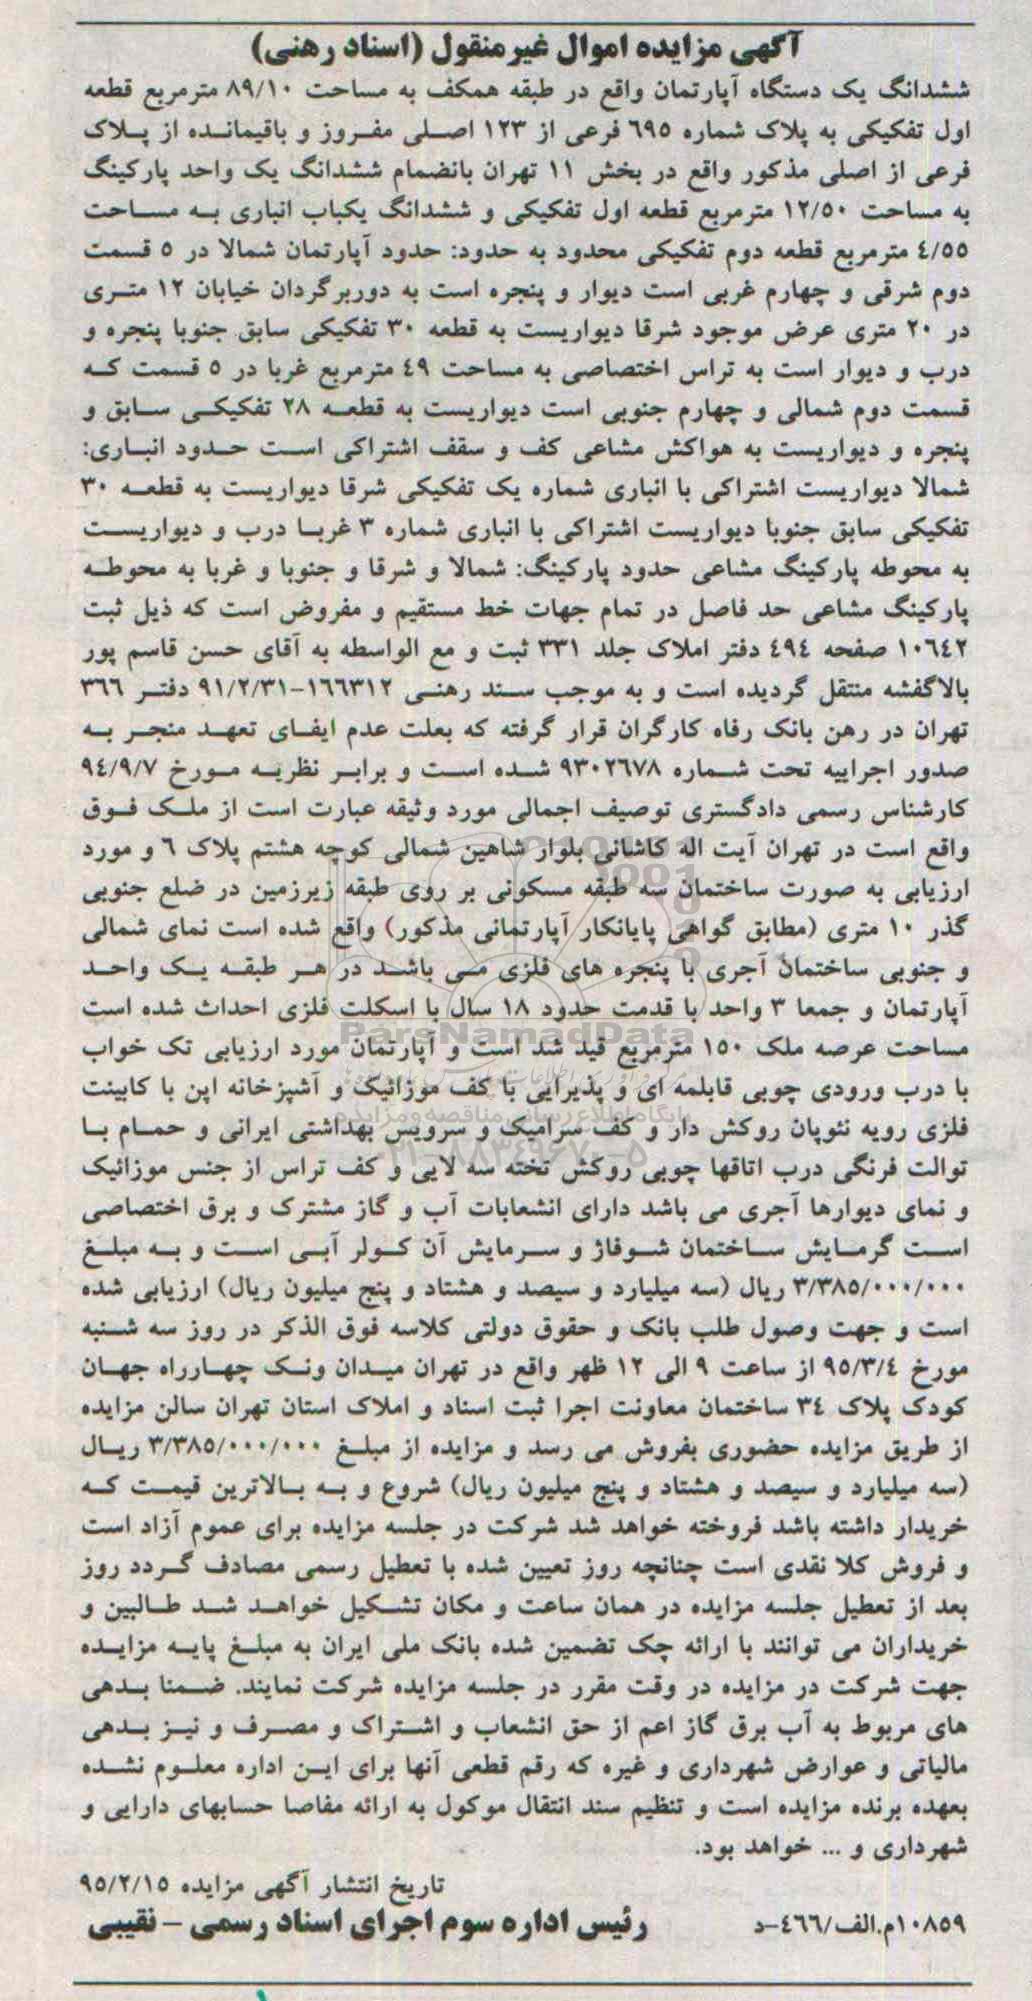 آگهی مزایده اموال غیرمنقول (اسناد رهنی)
ششدانگ یک دستگاه آپارتمان واقع در طبقه همکف به مساحت ۸۹/۱۰ مترمربع قطعه
اول تفکیکی به پلاک شماره ۶۹۵ فرعی از ۱۲۳ اصلی مفروز و باقیمانده از پلاک
فرعی از اصلی مذکور واقع در بخش ۱۱ تهران بانضمام ششدانگ یک واحد پارکینگ
به مساحت ۱۲/۵۰ مترمربع قطعه اول تفکیکی و ششدانگ یکباب انباری به مساحت
۴/۵۵ مترمربع قطعه دوم تفکیکی محدود به حدود: حدود آپارتمان شمالا در ۵ قسمت
دوم شرقی و چهارم غربی است دیوار و پنجره است به دوربرگردان خیابان ۱۲ متری
در ۲۰ متری عرض موجود شرقا دیواریست به قطعه ۳۰ تفکیکی سابق جنوبا پنجره و
درب و دیوار است به تراس اختصاصی به مساحت ۴۹ مترمربع غربا در ۵ قسمت که
قسمت دوم شمالی و چهارم جنوبی است دیواریست به قطعه ۲۸ تفکیکی سابق و
پنجره و دیواریست به هواکش مشاعی کف و سقف اشتراکی است حدود انباری:
شمالا دیواریست اشتراکی با انباری شماره یک تفکیکی شرقا دیواریست به قطعه ۳۰
تفکیکی سابق جنوبا دیواریست اشتراکی با انباری شماره ۳ غربا درب و دیواریست
به محوطه پارکینگ مشاعی حدود پارکینگ: شمالا و شرقا و جنوبا و غربا به محوطه
پارکینگ مشاعی حد فاصل در تمام جهات خط مستقیم و مفروض است که ذیل ثبت
۱۰۶۴۲ صفحه ۴۹۴ دفتر املاک جلد ۳۳۱ ثبت و مع الواسطه به آقای حسن قاسم پور
بالاگفشه منتقل گردیده است و به موجب سند رهنی ۱۶۶۳۱۲-۹۱/۲/۳۱ دفتر ۳۶۶
تهران در رهن بانک رفاه کارگران قرار گرفته که بعلت عدم ایفای تعهد منجر به
صدور اجراییه تحت شماره ۹۳۰۲۶۷۸ شده است و برابر نظریه مورخ ۹۴/۹/۷
کارشناس رسمی دادگستری توصیف اجمالی مورد وثیقه عبارت است از ملک فوق
واقع است در تهران آیت اله کاشانی بلوار شاهین شمالی کوچه هشتم پلاک ۶ و مورد
ارزیابی به صورت ساختمان سه طبقه مسکونی بر روی طبقه زیرزمین در ضلع جنوبی
گذر ۱۰ متری (مطابق گواهی پایانکار آپارتمانی مذکور) واقع شده است نمای شمالی
و جنوبی ساختمان آجری با پنجره های فلزی می باشد در هر طبقه یک واحد
آپارتمان و جمعا ۳ واحد با قدمت حدود ۱۸ سال با اسکلت فلزی احداث شده است
ParsNamadData
مساحت عرصه ملک ۱۵۰ مترمربع قید شد است و آپارتمان مورد ارزیابی تک خواب
با درب ورودی چوبی قابلمه ای و پذیرایی با کف موزائیک و آشپزخانه اپن با کابینت
پایگاه اطلاع رسانی مناقصه و مزایده
فلزی رویه نئوپان روکش دار و کف سرامیک و سرویس بهداشتی ایرانی و حمام با
۰۲۱-۸۸۳۴۹۶۷۰-۵
توالت فرنگی درب اتاقها چوبی روکش تخته سه لایی و کف تراس از جنس موزائیک
و نمای دیوارها آجری می باشد دارای انشعابات آب و گاز مشترک و برق اختصاصی
است گرمایش ساختمان شوفاژ و سرمایش آن کولر آبی است و به مبلغ
۳/۳۸۵/۰۰۰/۰۰۰ ریال (سه میلیارد و سیصد و هشتاد و پنج میلیون ریال) ارزیابی شده
است و جهت وصول طلب بانک و حقوق دولتی کلاسه فوق الذکر در روز سه شنبه
مورخ ۹۵/۳/۴ از ساعت ۹ الی ۱۲ ظهر واقع در تهران میدان ونک چهارراه جهان
کودک پلاک ۳۴ ساختمان معاونت اجرا ثبت اسناد و املاک استان تهران سالن مزایده
از طریق مزایده حضوری بفروش می رسد و مزایده از مبلغ ۳/۳۸۵/۰۰۰/۰۰۰ ریال
(سه میلیارد و سیصد و هشتاد و پنج میلیون ریال) شروع و به بالاترین قیمت که
خریدار داشته باشد فروخته خواهد شد شرکت در جلسه مزایده برای عموم آزاد است
و فروش کلا نقدی است چنانچه روز تعیین شده با تعطیل رسمی مصادف گردد روز
بعد از تعطیل جلسه مزایده در همان ساعت و مکان تشکیل خواهد شد طالبین و
خریداران می توانند با ارائه چک تضمین شده بانک ملی ایران به مبلغ پایه مزایده
جهت شرکت در مزایده در وقت مقرر در جلسه مزایده شرکت نمایند. ضمنا بدهی
های مربوط به آب برق گاز اعم از حق انشعاب و اشتراک و مصرف و نیز بدهی
مالیاتی و عوارض شهرداری و غیره که رقم قطعی آنها برای این اداره معلوم نشده
بعهده برنده مزایده است و تنظیم سند انتقال موکول به ارائه مفاصا حسابهای دارایی و
شهرداری و ... خواهد بود.
تاریخ انتشار آگهی مزایده ۹۵/۲/۱۵
۱۰۸۵۹م.الف/۴۶۶-د رئیس اداره سوم اجرای اسناد رسمی - نقیبی